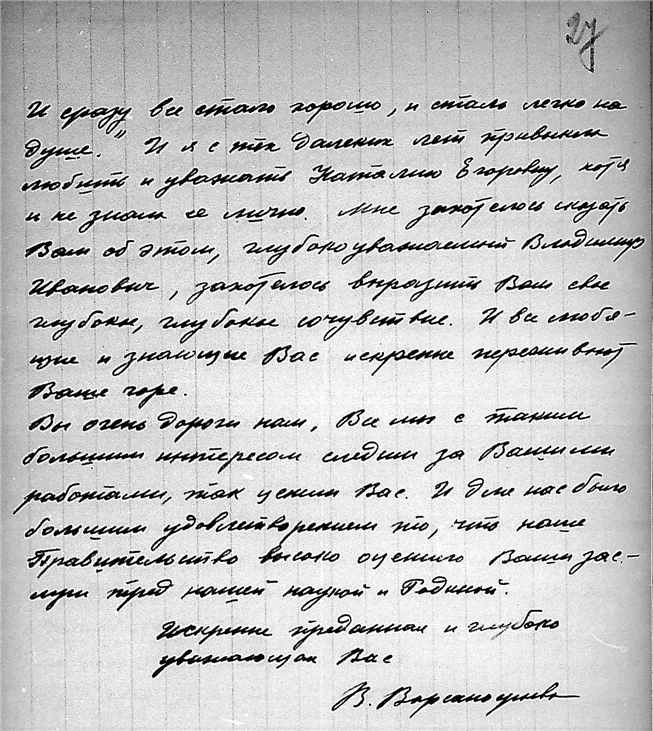 27
И сразу все стало хорошо, и стало легко на
душе." И я с тех далеких лет привыкла
любить и уважать Наталию Егоровну, хотя
и не знала ее лично. Мне захотелось сказать
Вам об этом, глубокоуважаемый Владимир
Иванович, захотелось выразить Вам свое
глубокое, глубокое сочувствие. И все любя-
щие и знающие Вас искренне переживают
Ваше горе.
Вы очень дороги нам, Все мы с таким
большим интересом следим за Вашими
работами, так ценим Вас. И для нас было
большим удовлетворением то, что наше
Правительство высоко оценило Ваши зас-
луги перед нашей наукой и Родиной.
Искренне преданная и глубоко
уважающая Вас
В. Варсанофьева